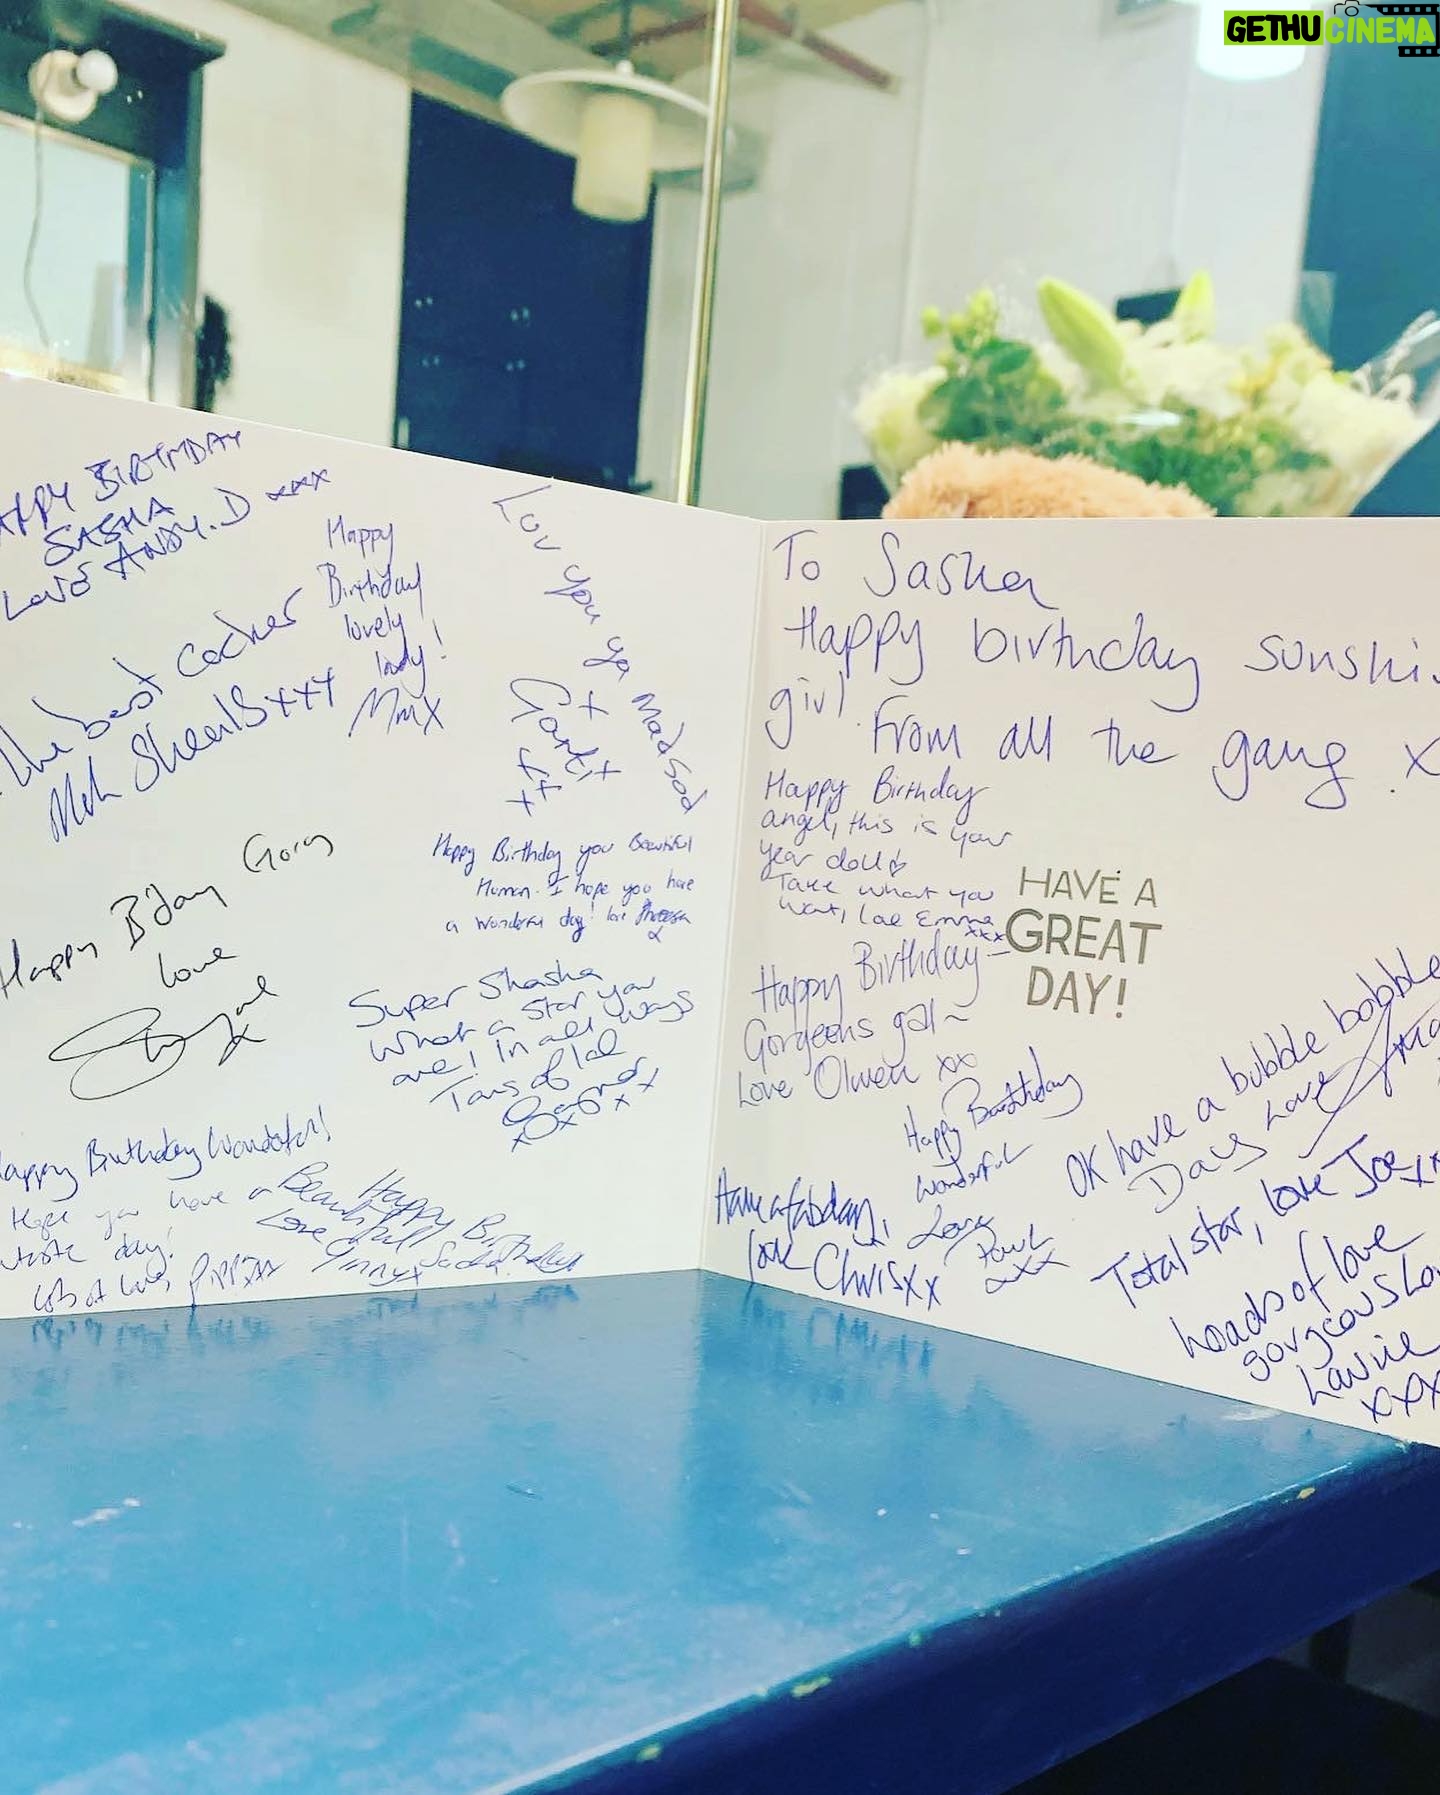 GETHUCINEMA
HAPPY BIRTHDAY
SASHA
LOVE ANDY. D xxxx
the best
Happy
Birthday
lovely
lady!
Lov you ya Mad Sod
Happy B'day Gorg
love
Happy Birthday you Beautiful
Human. I hope you have
a wonderful day! love
Super Shasha
What a star you
are! In all ways
Tons of lol
Happy Birthday Wonderful!
Hope you have a
day!
Lots of love, PIPPA
Beautiful
Love Ginny x
Happy Birthday
Sasha!
To Sasha
Happy birthday sunshi
girl. From all the gang x
Happy Birthday
angel, this is your
year doll
Take what you
want, love Emma
xxx
HAVE A
GREAT
DAY!
Happy Birthday
Gorgeous gal ~
Love Olwen xx
Happy Birthday
Wonderful
Love
Paul
xxx
Have a fab day,
love Chris xx
OK have a bubble bobble
Day Love
Total star, love Joe xx
Loads of love
gorgeous
Laurie
xxx